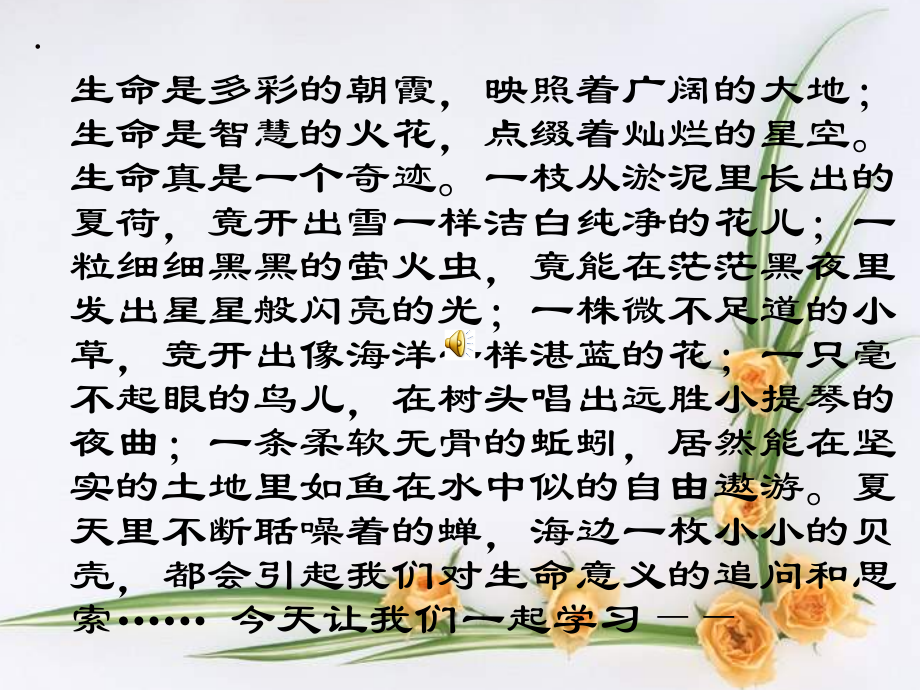 生命是多彩的朝霞，映照着广阔的大地；
生命是智慧的火花，点缀着灿烂的星空。
生命真是一个奇迹。一枝从淤泥里长出的
夏荷，竟开出雪一样洁白纯净的花儿；一
粒细细黑黑的萤火虫，竟能在茫茫黑夜里
发出星星般闪亮的光；一株微不足道的小
草，竞开出像海洋一样湛蓝的花；一只毫
不起眼的鸟儿，在树头唱出远胜小提琴的
夜曲；一条柔软无骨的蚯蚓，居然能在坚
实的土地里如鱼在水中似的自由遨游。夏
天里不断聒噪着的蝉，海边一枚小小的贝
壳，都会引起我们对生命意义的追问和思
索…… 今天让我们一起学习－－